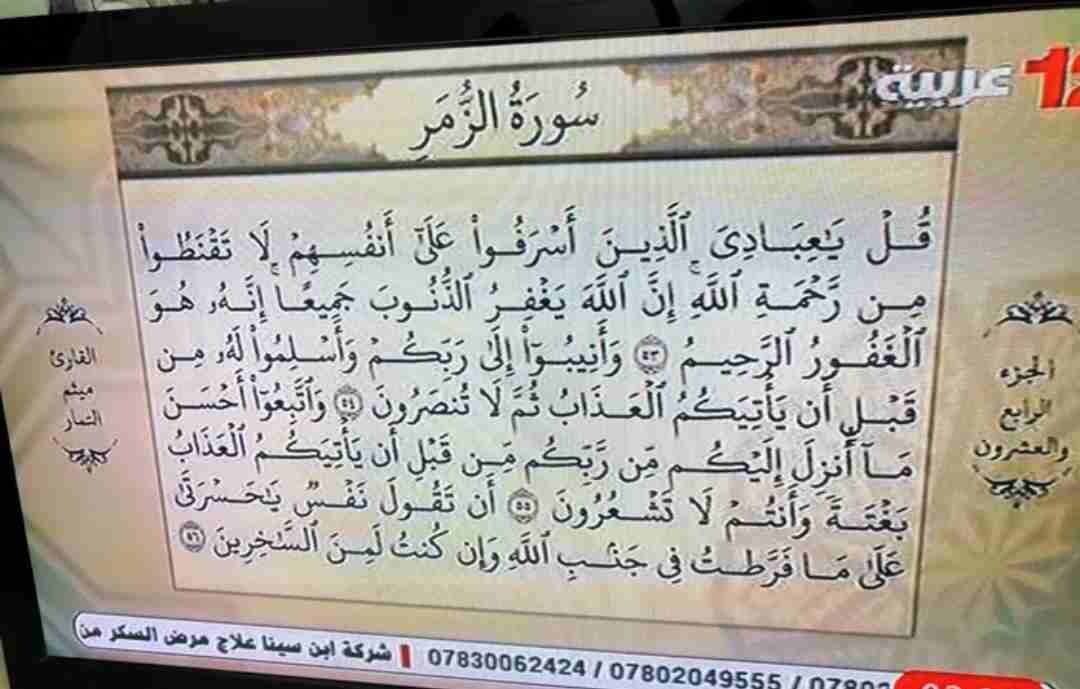 عربية 12
سُورَةُ الزُّمَرِ
قُلْ يَٰعِبَادِىَ ٱلَّذِينَ أَسْرَفُوا۟ عَلَىٰٓ أَنفُسِهِمْ لَا تَقْنَطُوا۟
مِن رَّحْمَةِ ٱللَّهِ ۚ إِنَّ ٱللَّهَ يَغْفِرُ ٱلذُّنُوبَ جَمِيعًا ۚ إِنَّهُۥ هُوَ
ٱلْغَفُورُ ٱلرَّحِيمُ ٥٣ وَأَنِيبُوٓا۟ إِلَىٰ رَبِّكُمْ وَأَسْلِمُوا۟ لَهُۥ مِن
قَبْلِ أَن يَأْتِيَكُمُ ٱلْعَذَابُ ثُمَّ لَا تُنصَرُونَ ٥٤ وَٱتَّبِعُوٓا۟ أَحْسَنَ
مَآ أُنزِلَ إِلَيْكُم مِّن رَّبِّكُم مِّن قَبْلِ أَن يَأْتِيَكُمُ ٱلْعَذَابُ
بَغْتَةً وَأَنتُمْ لَا تَشْعُرُونَ ٥٥ أَن تَقُولَ نَفْسٌ يَٰحَسْرَتَىٰ
عَلَىٰ مَا فَرَّطتُ فِى جَنۢبِ ٱللَّهِ وَإِن كُنتُ لَمِنَ ٱلسَّٰخِرِينَ ٥٦
الجزء
الرابع
والعشرون
القارئ
ميثم
التمار
شركة ابن سينا علاج مرض السكر من
07830062424 / 07802049555 / 07802